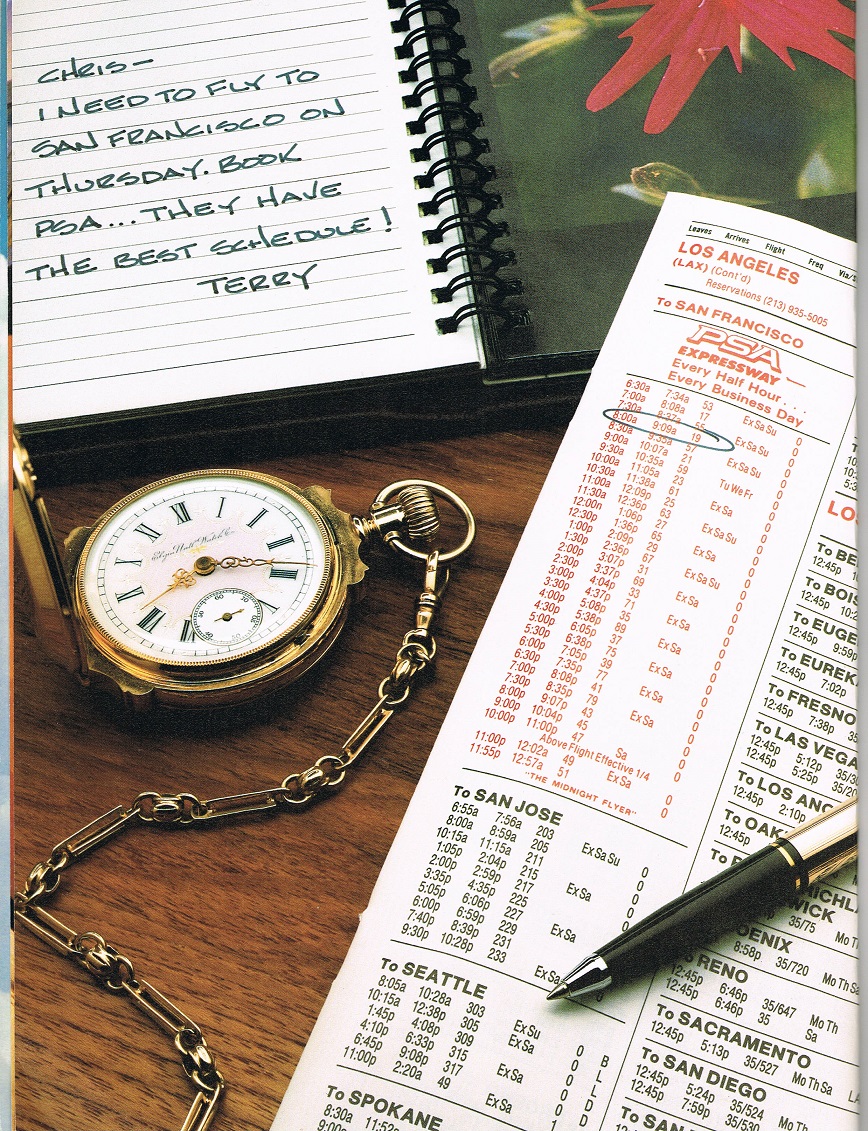 CHRIS—
I NEED TO FLY TO
SAN FRANCISCO ON
THURSDAY. BOOK
PSA... THEY HAVE
THE BEST SCHEDULE!
TERRY
Elgin Natl. Watch Co.
Leaves Arrives Flight Freq
LOS ANGELES
(LAX) (Cont'd)
Reservations (213) 935-5005
To SAN FRANCISCO
PSA
EXPRESSWAY—
Every Half Hour . . .
Every Business Day
6:30a 7:34a 53 ExSaSu 0
7:00a 8:08a 17 0
7:30a 8:37a 55 ExSaSu 0
8:00a 9:09a 19 0
8:30a 9:35a 57 ExSaSu 0
9:00a 10:07a 21 0
9:30a 10:35a 59 TuWeFr 0
10:00a 11:05a 23 0
10:30a 11:38a 61 ExSa 0
11:00a 12:09p 25 0
11:30a 12:36p 63 ExSaSu 0
12:00n 1:06p 27 0
12:30p 1:36p 65 ExSa 0
1:00p 2:09p 29 0
1:30p 2:36p 67 ExSaSu 0
2:00p 3:07p 31 0
2:30p 3:37p 69 ExSa 0
3:00p 4:04p 33 0
3:30p 4:37p 71 ExSa 0
4:00p 5:08p 35 0
4:30p 5:38p 89 ExSa 0
5:00p 6:05p 37 0
5:30p 6:38p 75 ExSa 0
6:00p 7:05p 39 0
6:30p 7:35p 77 ExSa 0
7:00p 8:08p 41 0
7:30p 8:35p 79 ExSa 0
8:00p 9:07p 43 0
9:00p 10:04p 45 0
10:00p 11:00p 47 Sa 0
Above Flight Effective 1/4
11:00p 12:02a 49 ExSa 0
11:55p 12:57a 51 0
"THE MIDNIGHT FLYER"
To SAN JOSE
6:55a 7:56a 203 ExSaSu 0
8:00a 8:59a 205 0
10:15a 11:15a 211
1:05p 2:04p 215 ExSa
2:00p 2:59p 217
3:35p 4:35p 225 ExSa
5:05p 6:06p 227
6:00p 6:59p 229
7:40p 8:39p 231
9:30p 10:28p 233 ExSa
To SEATTLE
8:05a 10:28a 303 ExSu 0 B
10:15a 12:38p 305 ExSa 0 L
1:45p 4:08p 309 0 L
4:10p 6:33p 315 ExSa 0 D
6:45p 9:08p 317 0 D
11:00p 2:20a 49 ExSa 1
To SPOKANE
8:30a
To BOIS
12:45p
To EUGE
12:45p 9:59p
To EUREK
12:45p 7:02p
To FRESNO
12:45p 7:38p
To LAS VEGA
12:45p 5:12p
12:45p 5:25p
To LOS ANG
12:45p 2:10p
To OAK
12:45p
35/75 Mo
8:58p 35/720 Mo Th Sa
RENO
12:45p 6:46p 35/647 Mo Th
12:45p 6:46p 35 Sa
To SACRAMENTO
12:45p 5:13p 35/527 Mo Th Sa
To SAN DIEGO
12:45p 5:24p 35/524 Mo Th
12:45p 7:59p 35/530